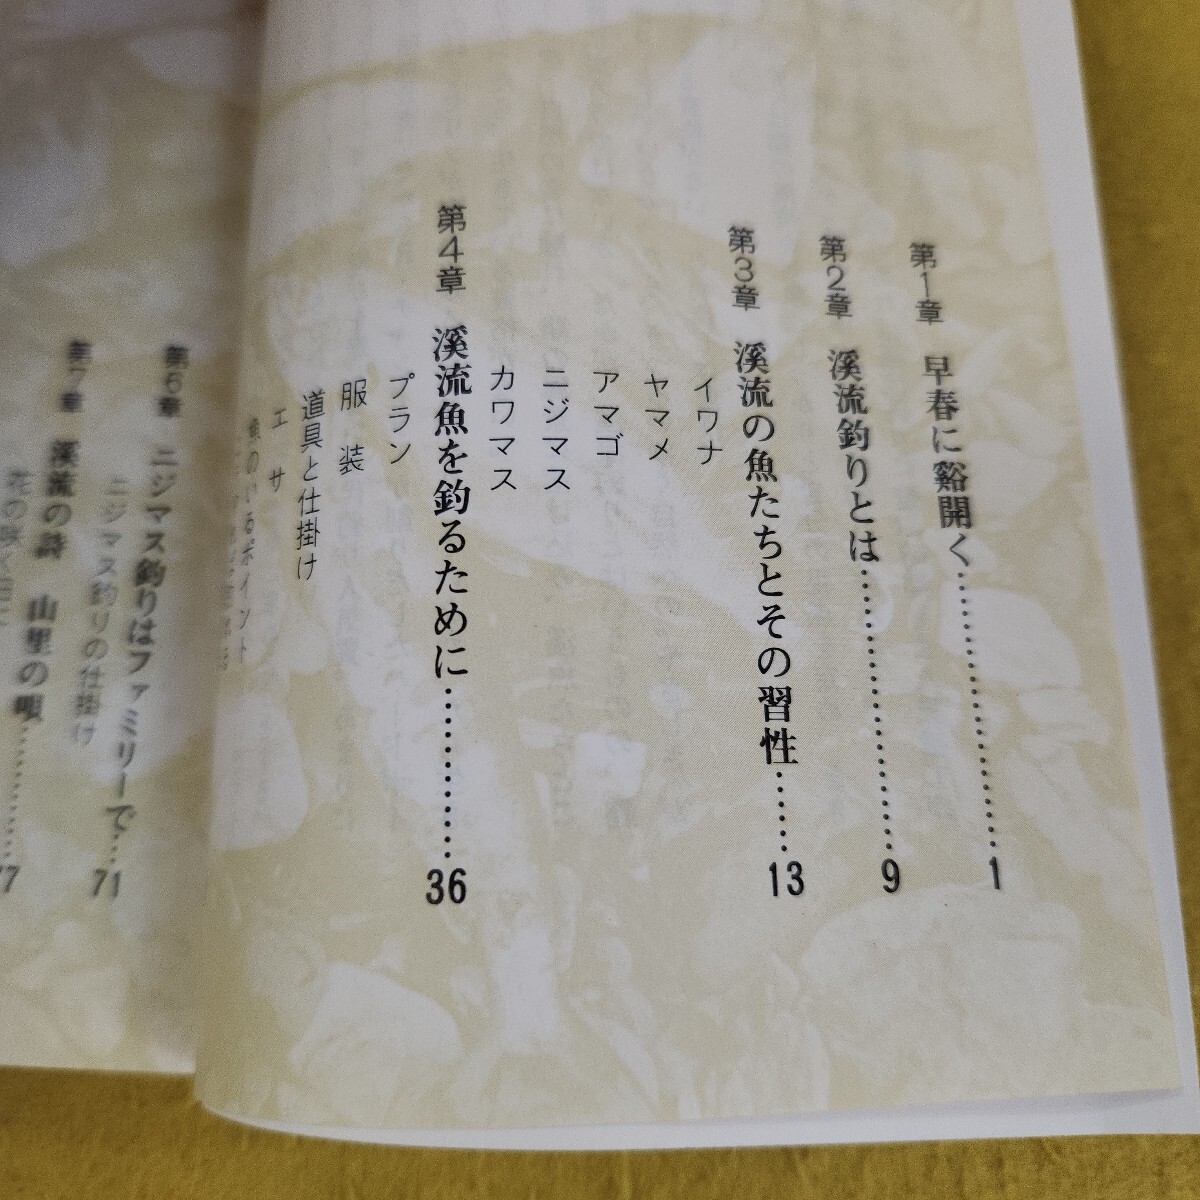 第1章 早春に谿開く…………1
第2章 溪流釣りとは…………9
第3章 溪流の魚たちとその習性……13
イワナ
ヤマメ
アマゴ
ニジマス
カワマス
第4章 溪流魚を釣るために…………36
プラン
服装
道具と仕掛け
エサ
魚のいるポイント
第6章 ニジマス釣りはファミリーで…71
ニジマス釣りの仕掛け
第7章 溪流の詩 山里の唄…………77